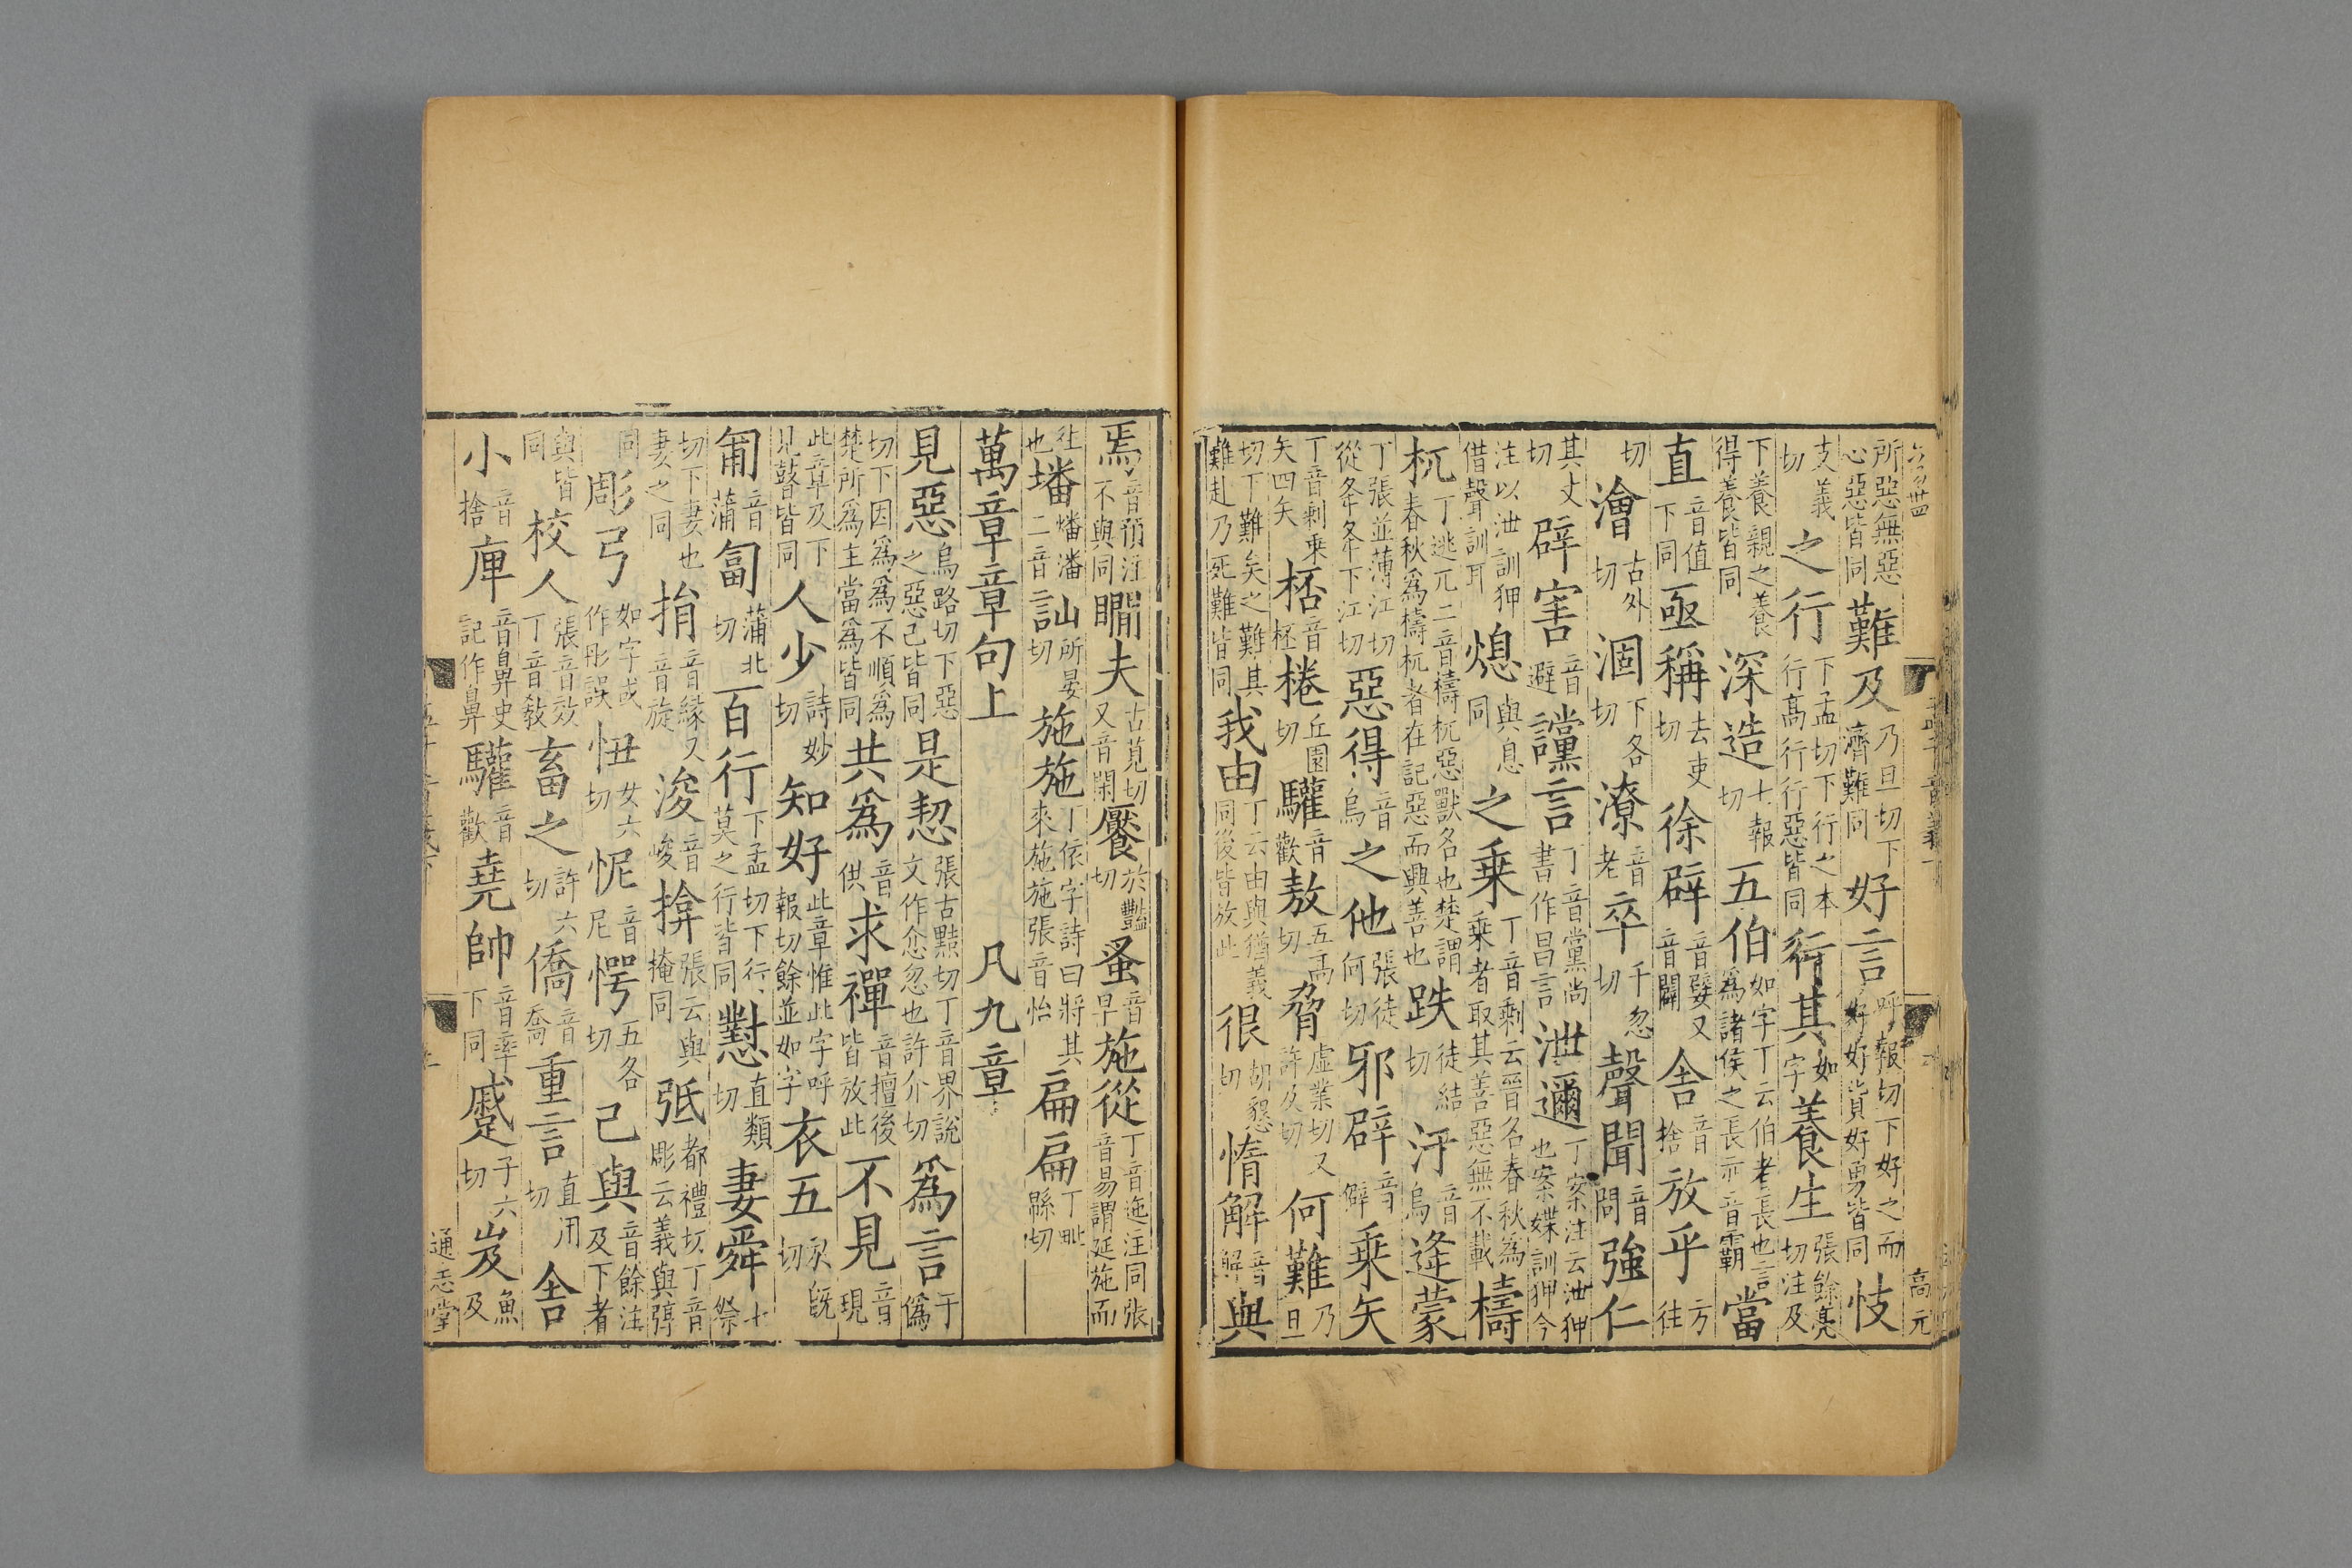 所惡無惡心惡皆同難及乃旦切下濟難同好言呼報切下好之而好好貨好勇皆同忮
支義切之行下孟切下行之本行高行行惡皆同行其如字養生張餘亮切注及
下養親之養得養皆同深造七報切五伯如字丁云伯者長也言爲諸侯之長亦音霸當
直音值下同亟稱去吏切徐辟音嬖又音闢舍音捨放乎方往
切澮古外切涸下各切潦音老卒千忽切聲聞音問強仁
其丈切辟害音避讜言丁音黨尚書作昌言泄邇丁案注云泄狎也案媟訓狎今
注以泄訓狎借聲訓耳熄與息同之乗丁音剩云晉名春秋爲乗者取其善惡無不載檮
杌丁逃兀二音檮杌惡獸名也楚謂春秋爲檮杌者在記惡而興善也跌徒結切汙音烏逄蒙
丁張並薄江切從夅夅下江切惡得音烏之他張徒何切邪辟音僻乗矢
丁音剰乗矢四矢桮音杯棬丘園切驩音歡敖五高切脅虛業切又許及切何難乃旦
切下難矣之難其難赴乃死難皆同我由丁云由與猶義同後皆放此很胡懇切惰解音懈與
焉音預注不與同瞯夫古莧切又音閑饜於豔切蚤音早施從丁音迤注同張音易謂延施而
往也墦燔潘二音訕所晏切施施丁依字詩曰將其來施施張音怡扁扁丁毗緜切
萬章章句上 凡九章
見惡烏路切下惡之惡己皆同是恝張古黠切丁音界說文作忿忽也許介切爲言于僞
切下因爲爲不順爲楚所爲主當爲皆同共爲音供求禪音擅後皆放此不見音現
此章及下見瞽皆同人少詩妙切知好此章惟此字呼報切餘並如字衣五於既切
匍音蒲匐蒲北切百行下孟切下行莫之行皆同懟直類切妻舜七祭
切下妻也妻之同捐音緣又音旋浚音峻揜張云與掩同弤都禮切丁音彫云義與弴
同彫弓如字或作彤誤忸女六切怩音尼愕五各切己與音餘注及下者
與皆同校人張音效丁音敎畜之許六切僑音喬重言直用切舍
小音捨庳音鼻史記作鼻驩音歡堯帥音率下同蹙子六切岌魚及
高元
通志堂